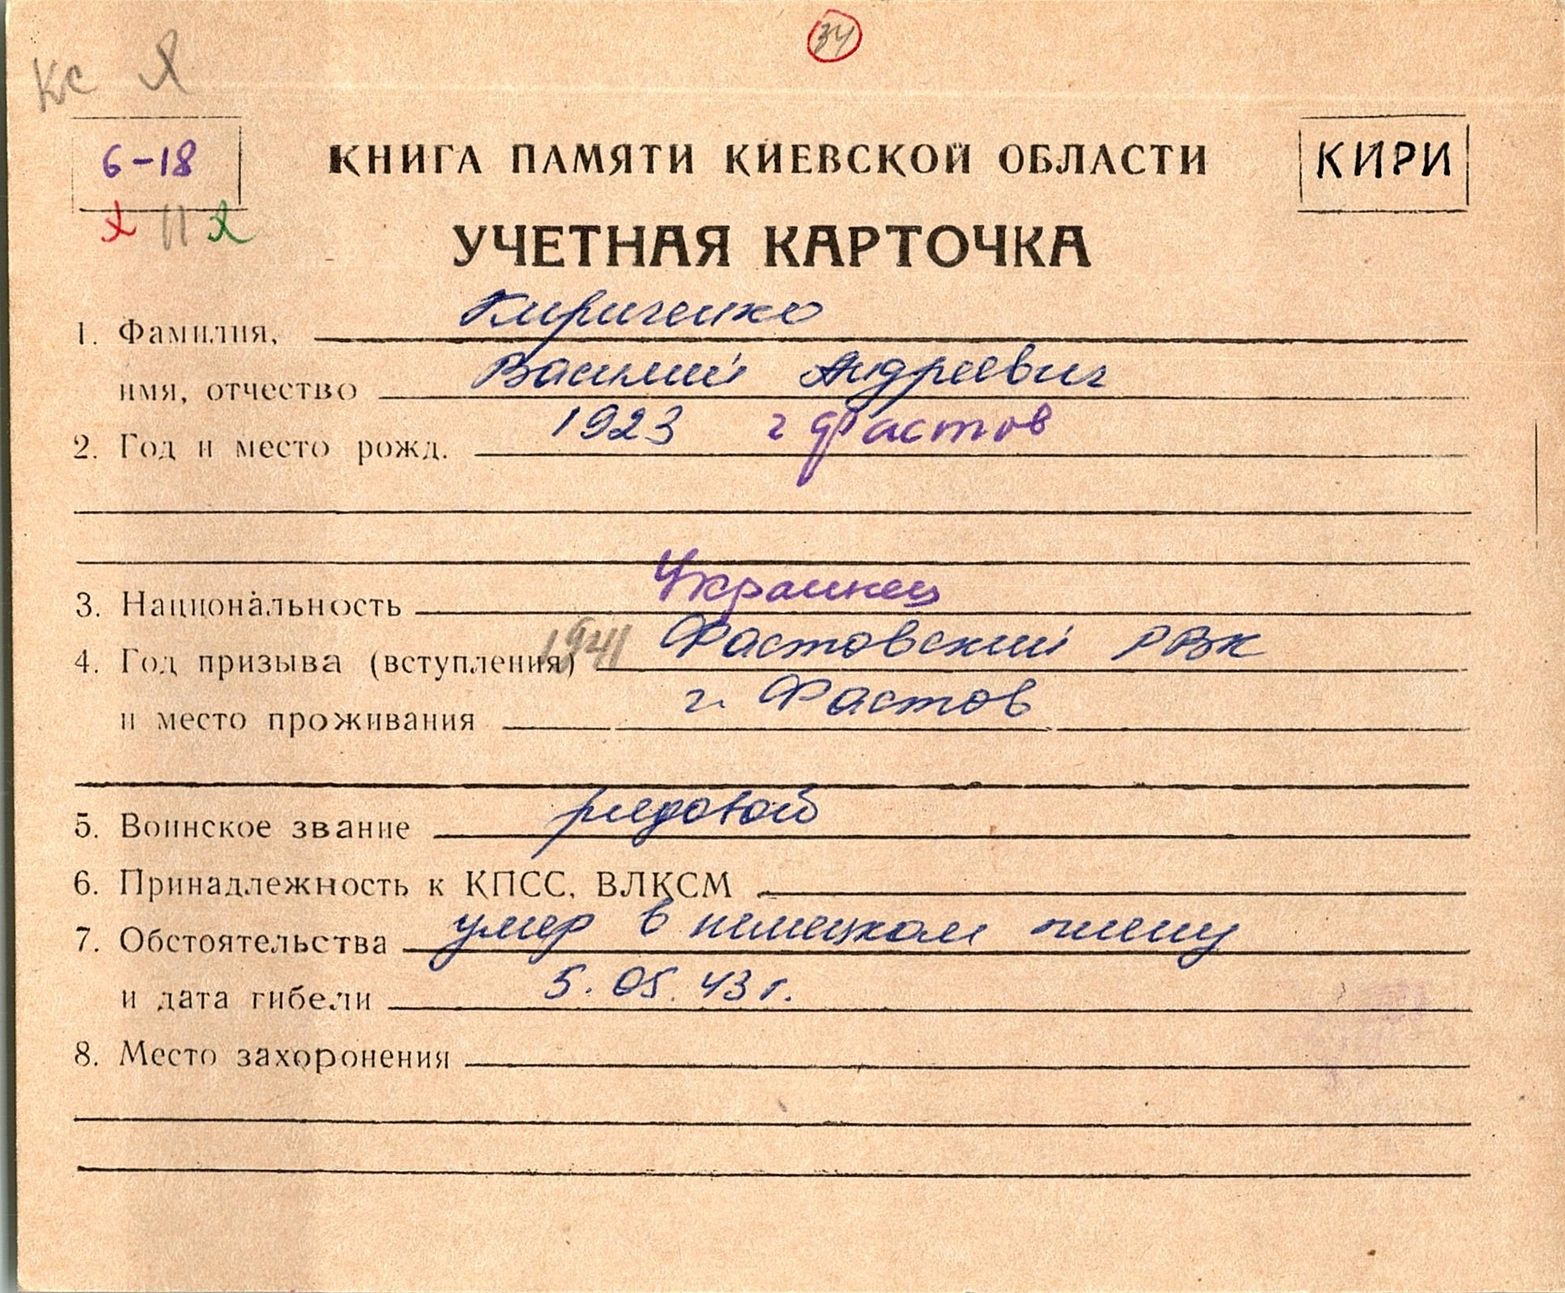 34
Кс
6-18
КНИГА ПАМЯТИ КИЕВСКОЙ ОБЛАСТИ
КИРИ
УЧЕТНАЯ КАРТОЧКА
1. Фамилия, Кириченко
имя, отчество Василий Андреевич
2. Год и место рожд. 1923 г Фастов
3. Национальность Украинец
4. Год призыва (вступления) 1941 Фастовский РВК
и место проживания г. Фастов
5. Воинское звание рядовой
6. Принадлежность к КПСС, ВЛКСМ
7. Обстоятельства умер в немецком плену
и дата гибели 5.05.43 г.
8. Место захоронения